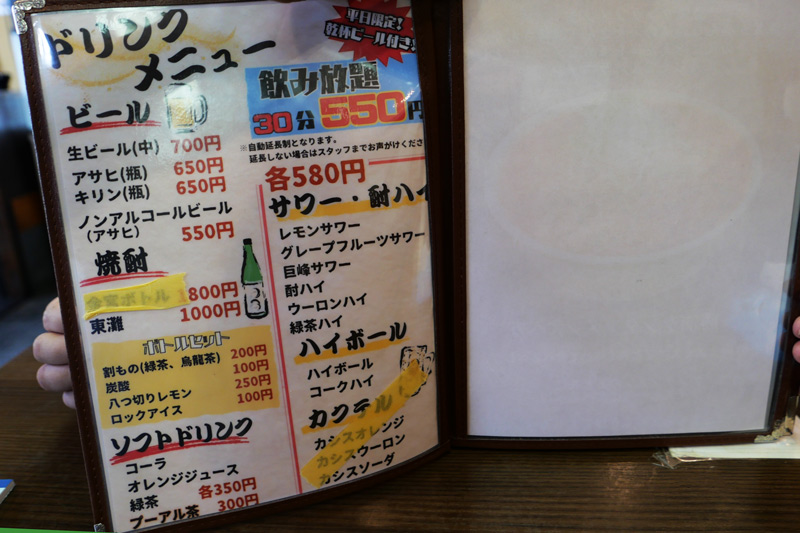 ドリンク
メニュー
平日限定!
乾杯ビール付き!
飲み放題
30分 550円
※自動延長制となります。
延長しない場合はスタッフまでお声がけくださ
ビール
生ビール(中) 700円
アサヒ(瓶) 650円
キリン(瓶) 650円
ノンアルコールビール
(アサヒ) 550円
焼酎
金宮ボトル 1800円
東灘 1000円
ボトルセット
割もの(緑茶、烏龍茶) 200円
炭酸 100円
八つ切りレモン 250円
ロックアイス 100円
ソフトドリンク
コーラ
オレンジジュース
緑茶 各350円
プーアル茶 300円
各580円
サワー・酎ハイ
レモンサワー
グレープフルーツサワー
巨峰サワー
酎ハイ
ウーロンハイ
緑茶ハイ
ハイボール
ハイボール
コークハイ
カクテル
カシスオレンジ
カシスウーロン
カシスソーダ